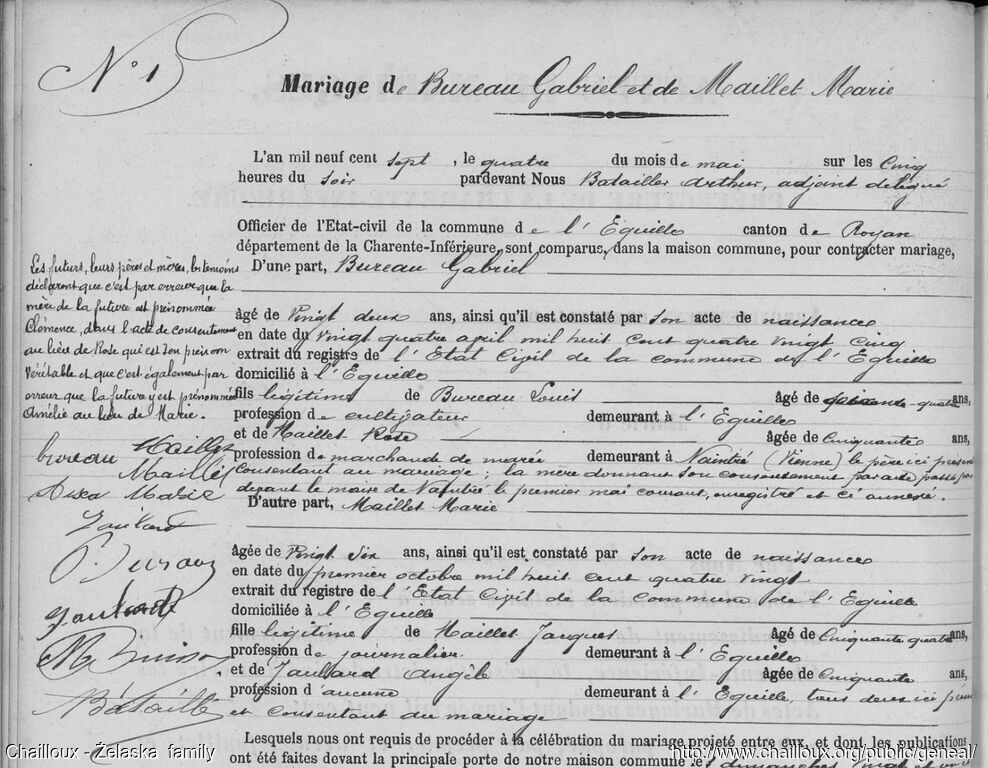 N° 15
Mariage de Bureau Gabriel et de Maillet Marie
L'an mil neuf cent sept, le quatre du mois de mai sur les cinq
heures du soir pardevant Nous Batailler Arthur, adjoint délégué
Officier de l'Etat-civil de la commune de l'Eguille canton de Royan
département de la Charente-Inférieure, sont comparus, dans la maison commune, pour contracter mariage,
D'une part, Bureau Gabriel
âgé de Vingt deux ans, ainsi qu'il est constaté par son acte de naissance
en date du vingt quatre avril mil huit cent quatre vingt cinq
extrait du registre de l'Etat Civil de la commune de l'Eguille
domicilié à l'Eguille
fils légitime de Bureau Louis âgé de quatre ans,
profession de cultivateur demeurant à l'Eguille
et de Maillet Rose âgée de Cinquante ans,
profession de marchande de marée demeurant à Naintré (Vienne) le père ici présent
consentant au mariage ; la mère donnant son consentement par acte passé par
devant le maire de Naintré le premier mai courant, enregistré et ci annexé.
D'autre part, Maillet Marie
âgée de Vingt six ans, ainsi qu'il est constaté par son acte de naissance
en date du premier octobre mil huit cent quatre vingt
extrait du registre de l'Etat Civil de la commune de l'Eguille
domiciliée à l'Eguille
fille légitime de Maillet Jacques âgé de Cinquante quatre ans,
profession de journalier demeurant à l'Eguille
et de Jaulard Angèle âgée de Cinquante ans,
profession d'aucune demeurant à l'Eguille, tous deux ici présents
et consentant au mariage
Lesquels nous ont requis de procéder à la célébration du mariage projeté entre eux, et dont les publications
ont été faites devant la principale porte de notre maison commune les dimanches
Les futurs, leurs pères et mères, les témoins
déclarent que c'est par erreur que la
mère de la future est prénommée
Clémence, dans l'acte de consentement
au lieu de Rose qui est son prénom
véritable et que c'est également par
erreur que la future y est prénommée
Amélie au lieu de Marie.
Bureau Maillet
Maillet
Marie
Jaulard
M Buisson
Chailloux - Żelaska family
http://www.chailloux.org/public/geneal/